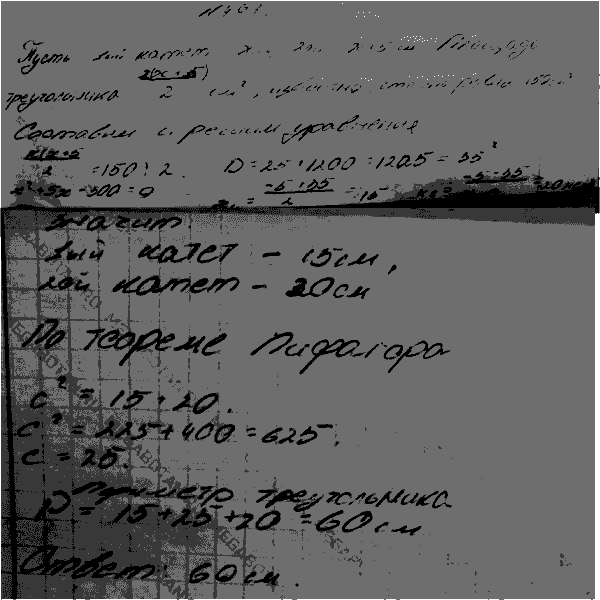 Пусть 1ый катет x см, 2ой x+5 см Площадь
x(x+5)
треугольника 2 см², известно, что равна 150 см²
Составим и решим уравнение
x(x+5)
2 =150 | · 2 D = 25 + 1200 = 1225 = 35²
x² + 5x - 300 = 0 x₁ = -5+35 / 2 = 15 x₂ = -5-35
значит
1ый катет - 15 см,
2ой катет - 20 см
По теореме Пифагора
c² = 15 + 20.
c² = 225 + 400 = 625.
c = 25.
Периметр треугольника
P = 15 + 25 + 20 = 60 см
Ответ: 60 см.